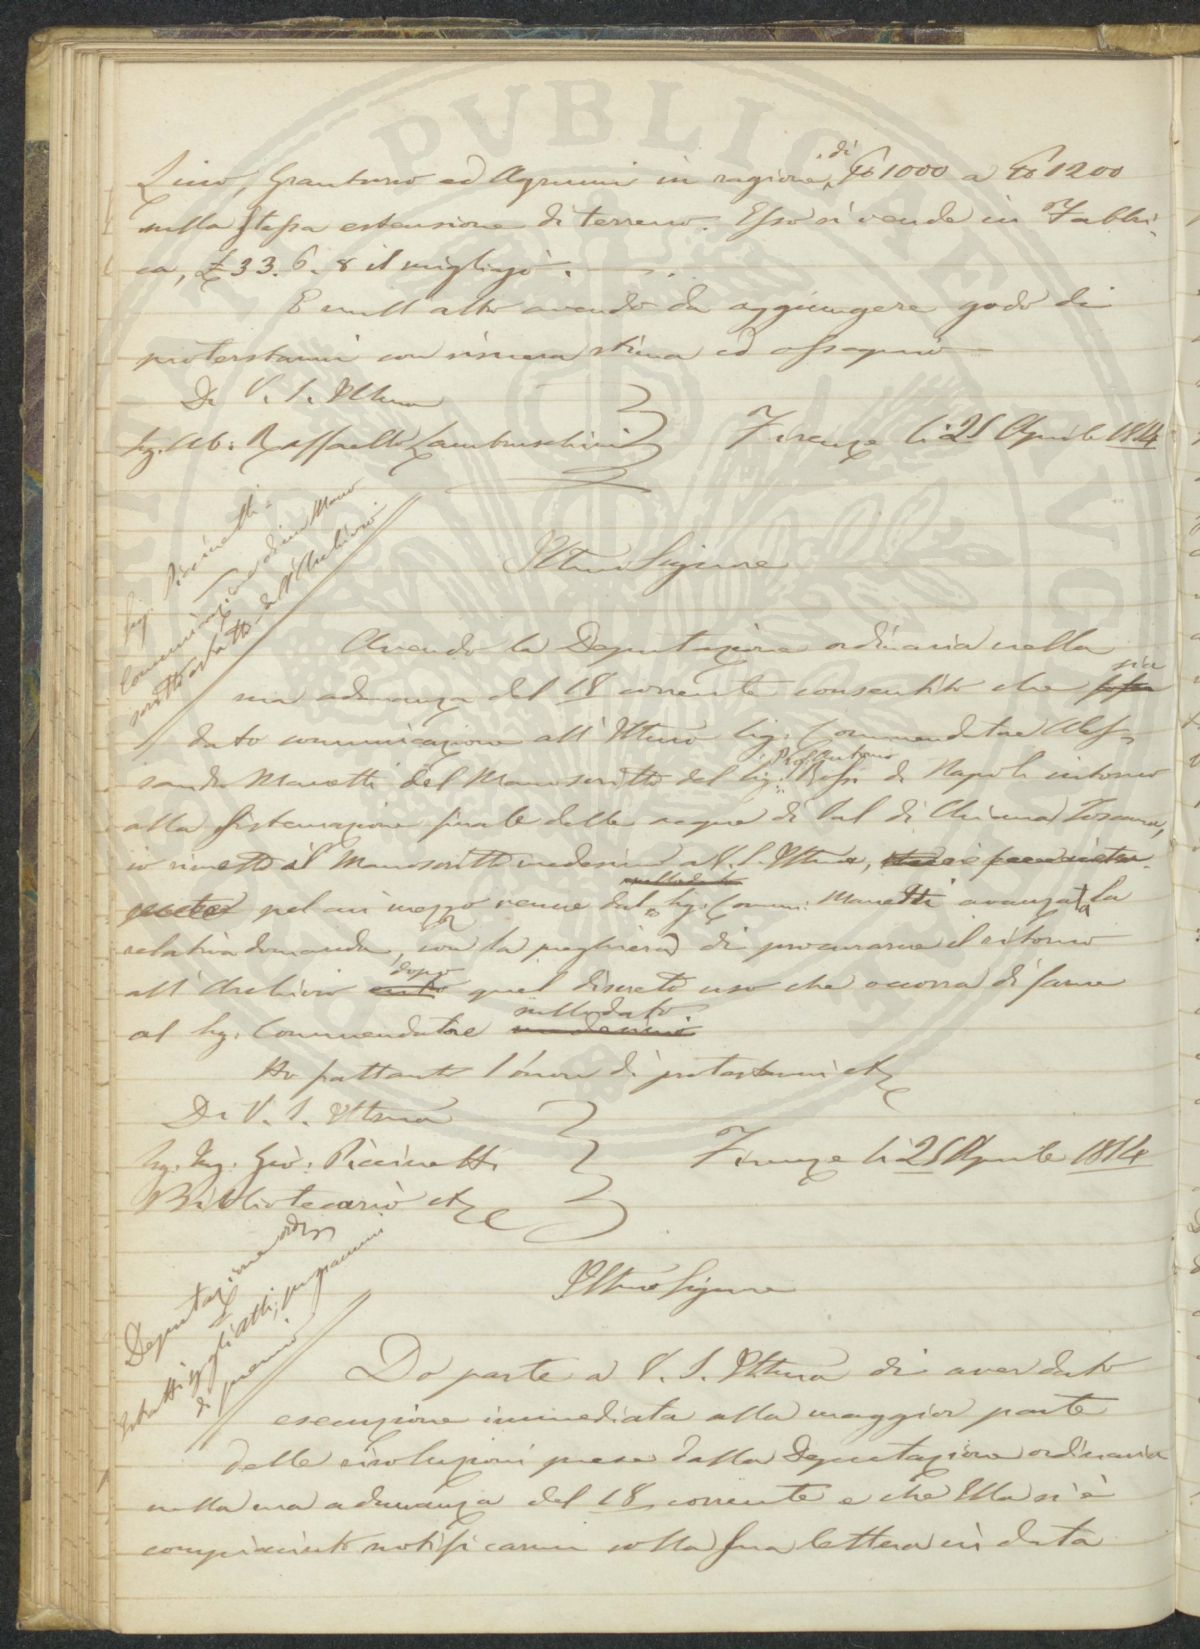 Lino, Granturco ed Agrumi in ragione di lb 1000 a lb 1200
nella stessa estensione di terreno. Esso si vende in Fabbri-
ca, £ 33. 6. 8 il migliajo.
E null'altro avendo da aggiungere godo di
protestarmi con sincera stima ed ossequio
Di V. S. Illma
Sig. Ab: Raffaello Lambruschini
Firenze li 25 Aprile 1854
Sig. Piccinetti
Comunicazione di un Mano
scritto estratto dall'Archivio
Illmo Signore
Avendo la Deputazione ordinaria nella
sua adunanza del 18 corrente consentito che sia
dato comunicazione all'Illmo Sig. Commendatore Ales-
sandro Manetti del Manoscritto del Sig. Prof. Antonio di Napoli intorno
alla sistemazione finale delle acque di Val di Chiana Toscana,
io rimetto il Manoscritto medesimo a V. S. Illma,
pel cui mezzo venne dal Sig. Comm: Manetti avanzata la
relativa domanda, con la preghiera di procurarne il ritorno
all'Archivio dopo quel discreto uso che occorra di farne
al Sig. Commendatore sullodato.
Ho frattanto l'onore di protestarmi etc
Di V. S. Illma
Sig. Ing. Gio: Piccinetti
Bibliotecario etc
Firenze li 25 Aprile 1854
Deputazione ordin.
Estratti degli Atti; programmi
di premio
Illmo Signore
Do parte a V. S. Illma di aver dato
esecuzione immediata alla maggior parte
delle risoluzioni prese dalla Deputazione ordinaria
nella sua adunanza del 18 corrente e che Ella si è
compiaciuto notificarmi colla sua lettera in data